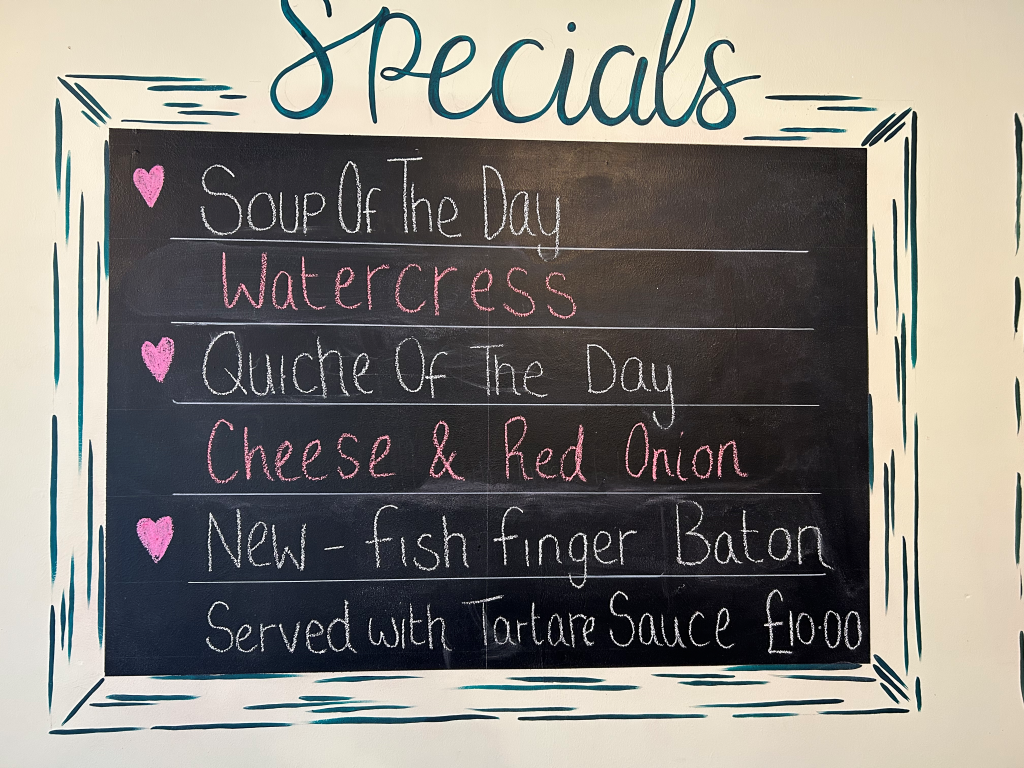 Specials
Soup Of The Day
Watercress
Quiche Of The Day
Cheese & Red Onion
New - fish finger Baton
Served with Tartare Sauce £10.00